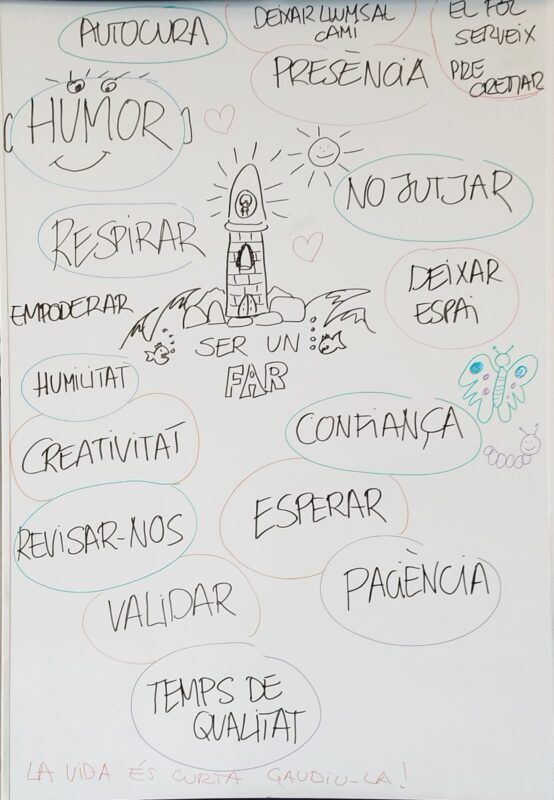 AUTOCURA
DEIXAR LLUMS AL
CAMI
EL
SERVEIX
PRE
HUMOR
PRESÈNCIA
NO JUTJAR
RESPIRAR
DEIXAR
ESPAI
EMPODERAR
SER UN
FAR
HUMILITAT
CREATIVITAT
CONFIANÇA
REVISAR-NOS
ESPERAR
VALIDAR
PACIÈNCIA
TEMPS DE
QUALITAT
LA VIDA ÉS CURTA GAUDIU-LA!